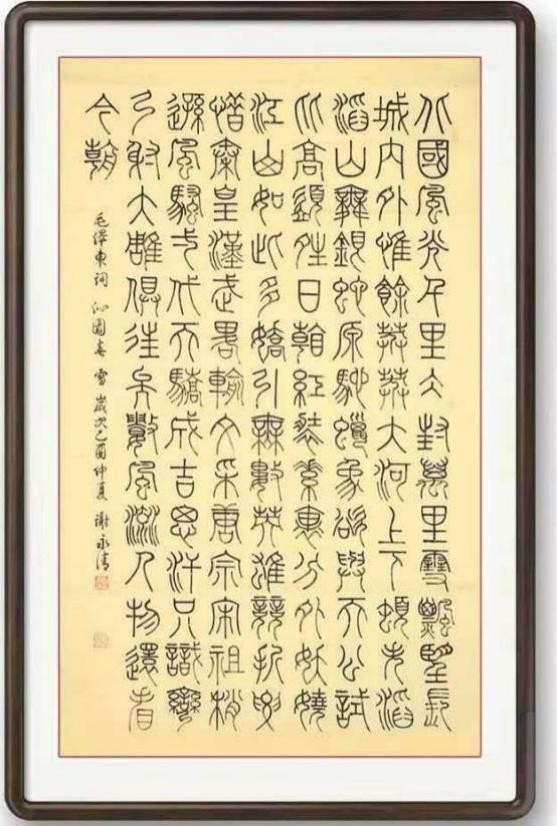 北國風光千里冰封萬里雪飄望長
城內外惟餘莽莽大河上下頓失滔
滔山舞銀蛇原馳蠟象欲與天公試
比高須晴日看紅裝素裹分外妖嬈
江山如此多嬌引無數英雄競折腰
惜秦皇漢武略輸文采唐宗宋祖稍
遜風騷弌代天驕成吉思汗只識彎
弓射大雕俱往矣數風流人物還看
今朝
毛澤東詞 沁園春 雪 歲次乙酉仲夏 謝永清